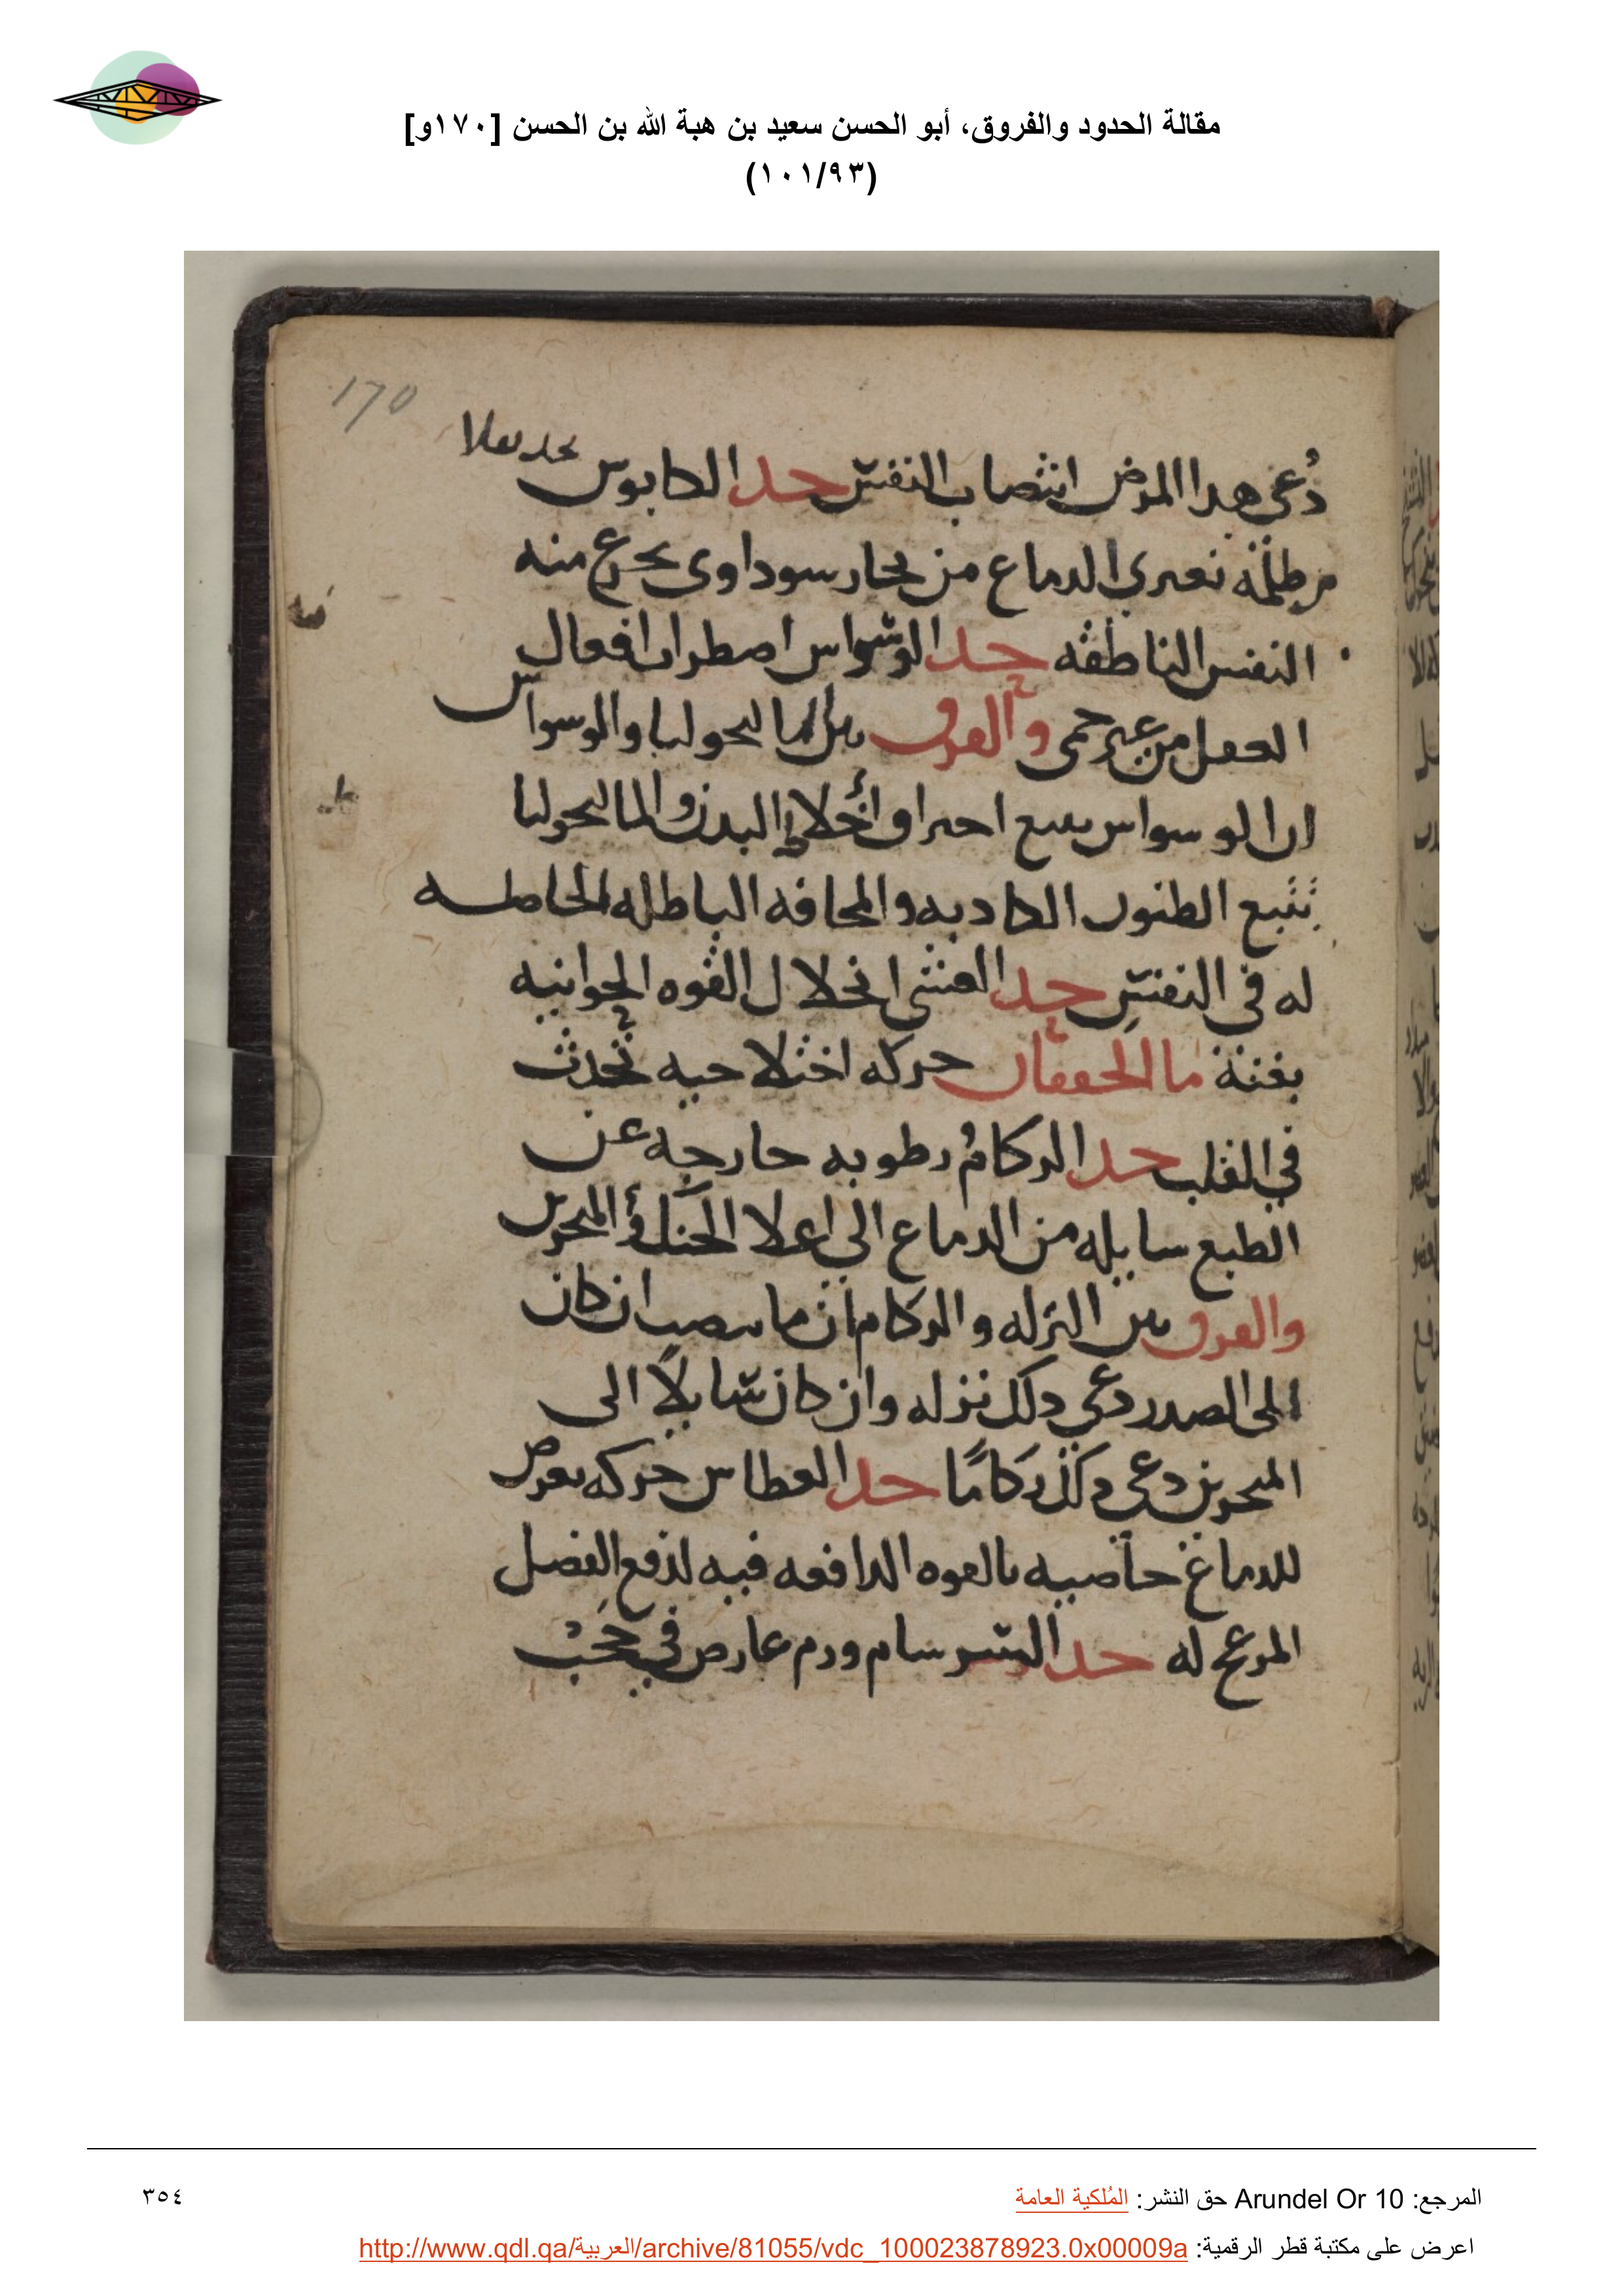 مقالة الحدود والفروق، أبو الحسن سعيد بن هبة الله بن الحسن [١٧٠و]
(١٠١/٩٣)
170
دُعى هدا المرض انتصاب النفس حد الكابوس
ظلمة تعترى الدماع من بحار سوداوى يحرع منه
النفس الناطقه حد الوسواس اصطراب افعال
العقل من عير حمى والفرق بين المالىحوليا والوسواس
ان الوسواس يتبع احتراق أخلاط البدن والمالىحوليا
تتبع الطنون الكادبه والمحافه الباطله الحاطله
له في النفس حد الغشى انحلال القوه الحوانيه
بغتة ما الحفقان حركه اختلاحيه تحدث
في القلب حد الركام رطوبه حارجه عن
الطبع سايله من الدماع الى اعلا الحنك أو المنحرين
والفرق بين النزله والركام أن ما ينصب ان كان
الى الصدر دعى دلك نزله وان كان سايلاً الى
المنحرين دعى دلك ركامًا حد العطاس حركه تعرض
للدماغ حاصيه بالقوه الدافعه فيه لدفع الفضل
المرعج له حد السرسام ورم عارص في حجب
٣٥٤
المرجع: Arundel Or 10 حق النشر: المُلكية العامة
اعرض على مكتبة قطر الرقمية: http://www.qdl.qa/العربية/archive/81055/vdc_100023878923.0x00009a